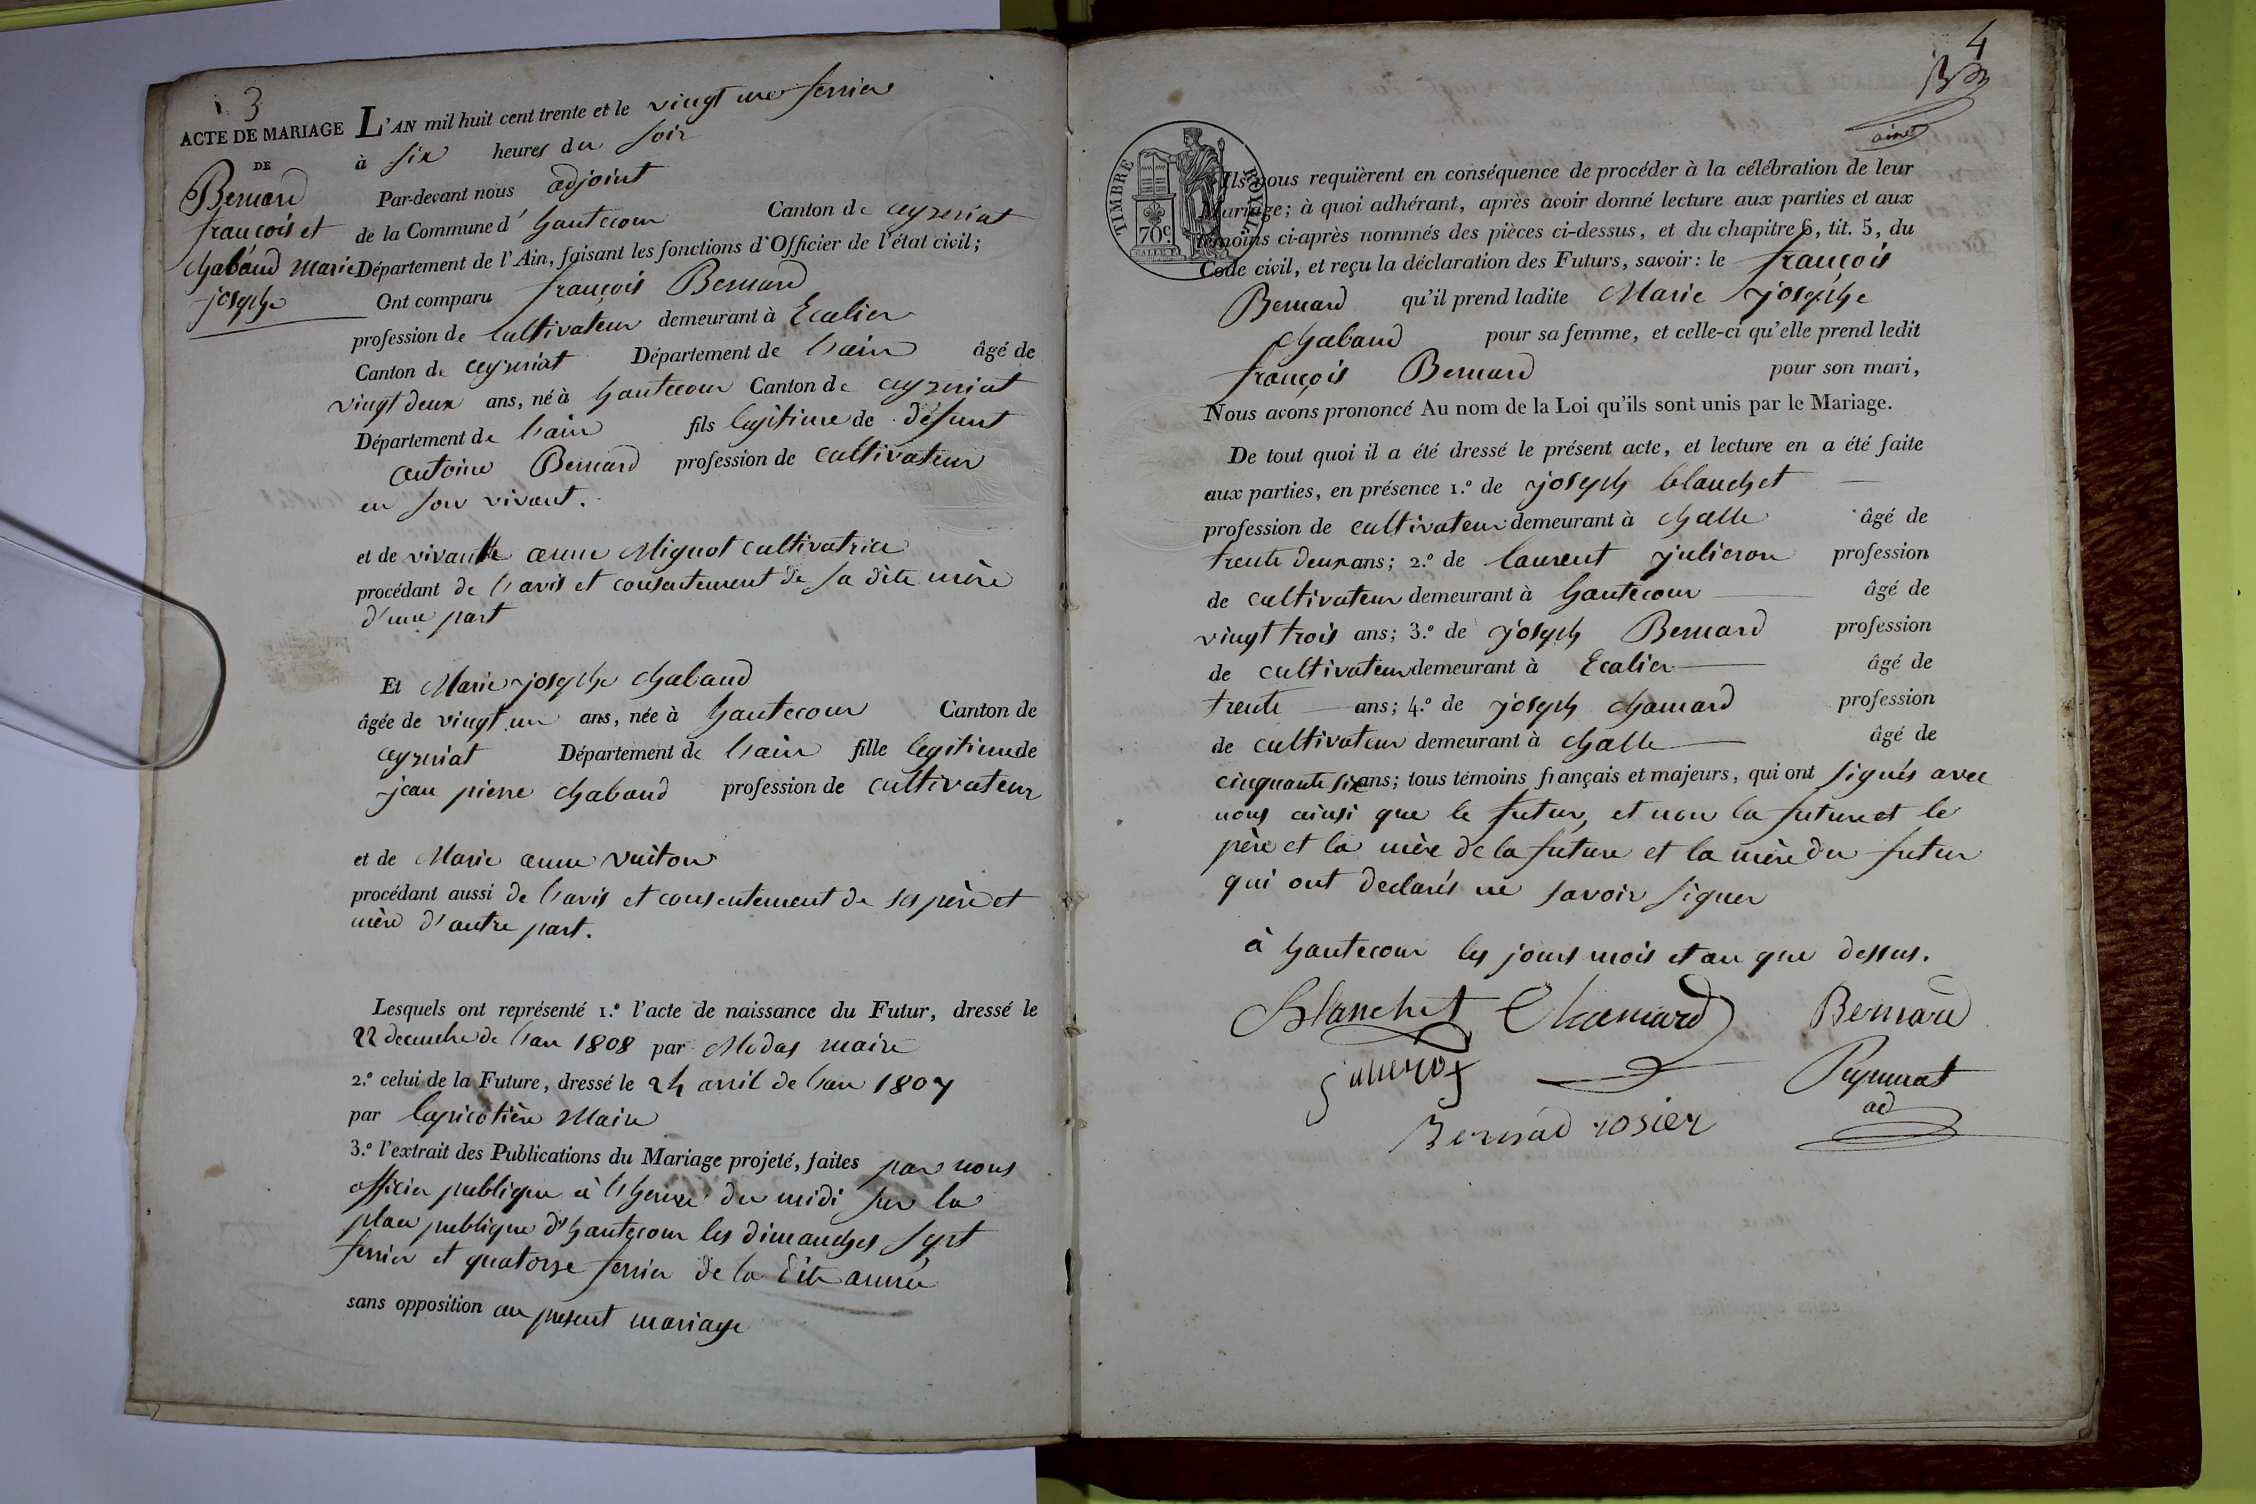 3
ACTE DE MARIAGE
DE
Bernard
françois et
chabaud Marie
josephe
L'AN mil huit cent trente et le vingt un fevrier
à six heures du soir
Par-devant nous adjoint
de la Commune d' hautecour Canton de ceyzeriat
Département de l'Ain, faisant les fonctions d'Officier de l'état civil;
Ont comparu françois Bernard
profession de cultivateur demeurant à Ecalier
Canton de ceyzeriat Département de l'ain âgé de
vingt deux ans, né à hautecour Canton de ceyzeriat
Département de l'ain fils legitime de défunt
antoine Bernard profession de cultivateur
en son vivant.
et de vivante anne Mignot cultivatrice
procédant de l'avis et consentement de sa dite mère
d'une part
Et Marie josephe chabaud
âgée de vingt un ans, née à hautecour Canton de
ceyzeriat Département de l'ain fille legitime de
jean pierre chabaud profession de cultivateur
et de Marie anne vuiton
procédant aussi de l'avis et consentement de ses père et
mère d'autre part.
Lesquels ont représenté 1.º l'acte de naissance du Futur, dressé le
22 decembre de l'an 1808 par Modas maire
2.º celui de la Future, dressé le 24 avril de l'an 1807
par lapicotière Maire
3.º l'extrait des Publications du Mariage projeté, faites par nous
officier publique à l'heure du midi sur la
place publique d'hautecour les dimanches sept
fevrier et quatorze fevrier de la dite année
sans opposition au present mariage
4
TIMBRE ROYAL
70c
Ils nous requièrent en conséquence de procéder à la célébration de leur
Mariage; à quoi adhérant, après avoir donné lecture aux parties et aux
témoins ci-après nommés des pièces ci-dessus, et du chapitre 6, tit. 5, du
Code civil, et reçu la déclaration des Futurs, savoir: le françois
Bernard qu'il prend ladite Marie josephe
chabaud pour sa femme, et celle-ci qu'elle prend ledit
françois Bernard pour son mari,
Nous avons prononcé Au nom de la Loi qu'ils sont unis par le Mariage.
De tout quoi il a été dressé le présent acte, et lecture en a été faite
aux parties, en présence 1.º de joseph blanchet
profession de cultivateur demeurant à challe âgé de
trente deux ans; 2.º de laurent julieron profession
de cultivateur demeurant à hautecour âgé de
vingt trois ans; 3.º de joseph Bernard profession
de cultivateur demeurant à Ecalier âgé de
trente ans; 4.º de joseph chamard profession
de cultivateur demeurant à challe âgé de
cinquante six ans; tous témoins français et majeurs, qui ont signés avec
nous ainsi que le futur, et non la future et le
père et la mère de la future et la mère du futur
qui ont declarés ne savoir signer
à hautecour les jours mois et an que dessus.
Blanchet Chamard Bernard
julieron
ad
Bernad rosier